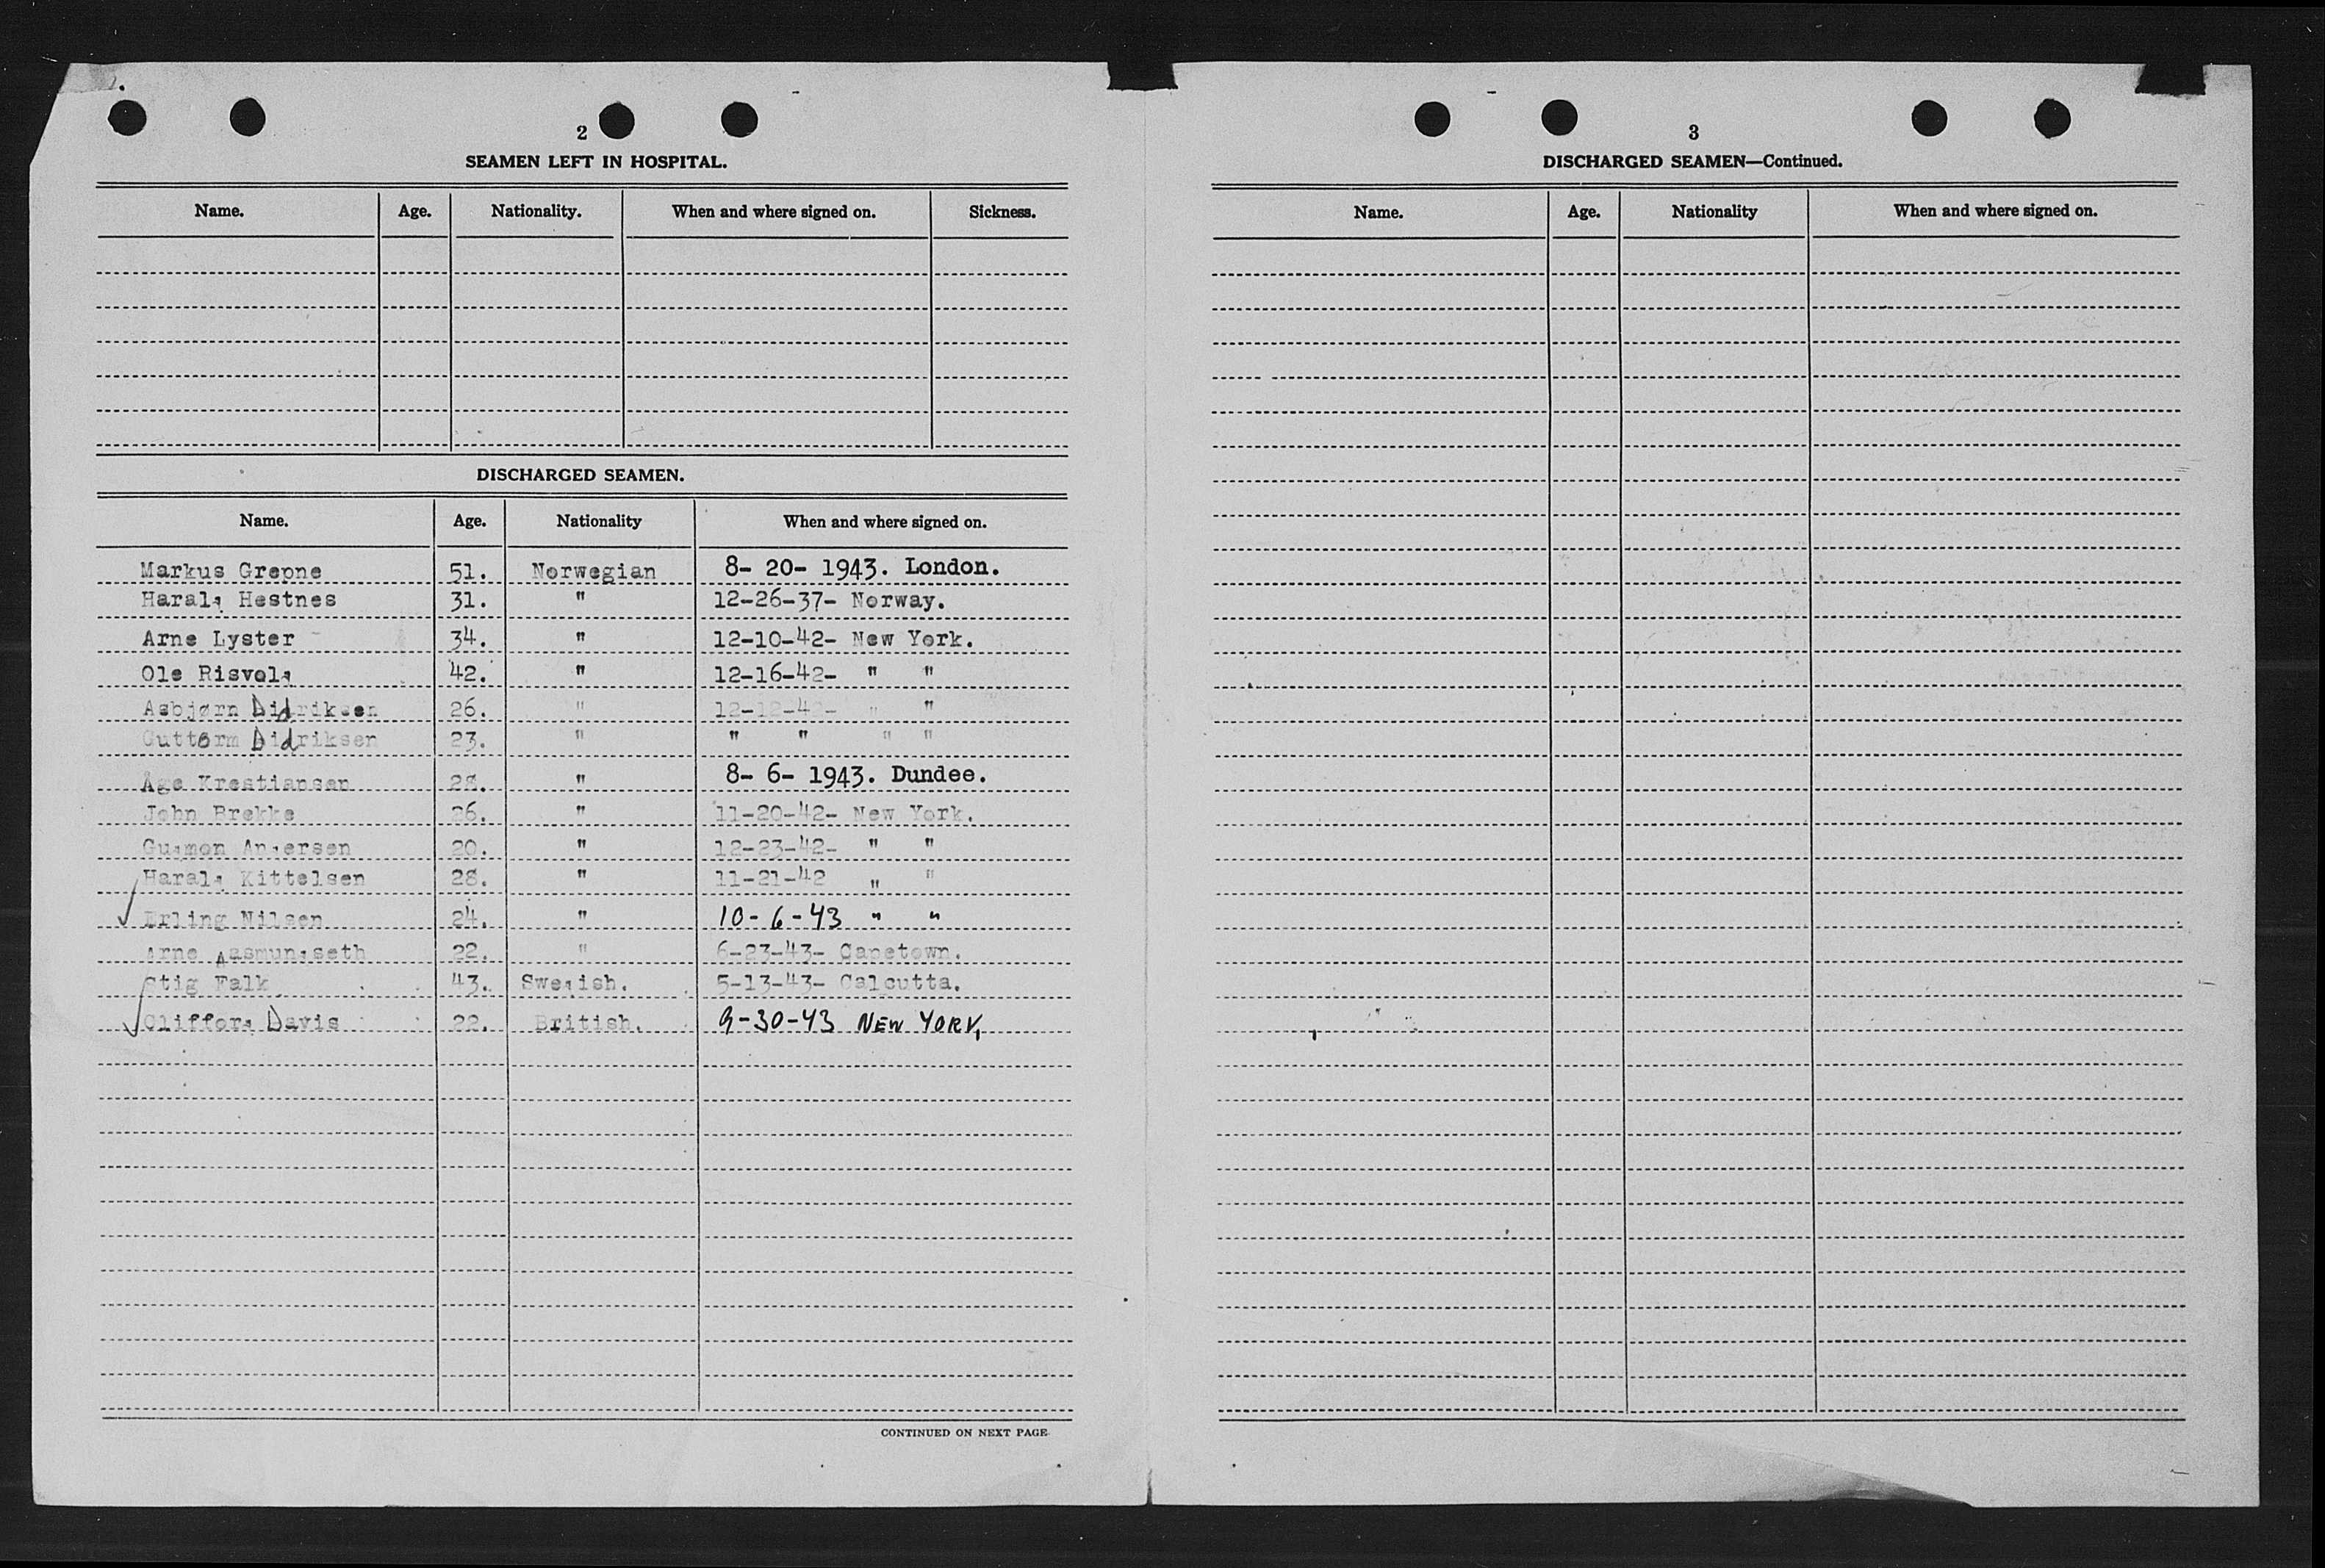 2
SEAMEN LEFT IN HOSPITAL.
Name. Age. Nationality. When and where signed on. Sickness.
DISCHARGED SEAMEN.
Name. Age. Nationality When and where signed on.
Markus Grepne 51. Norwegian 8- 20- 1943. London.
Harald Hestnes 31. " 12-26-37- Norway.
Arne Lyster 34. " 12-10-42- New York.
Ole Risvold 42. " 12-16-42- " "
Asbjørn Didriksen 26. " 12-12-42- " "
Guttorm Didriksen 23. " " " " "
Åge Krestiansen 28. " 8- 6- 1943. Dundee.
John Brekke 26. " 11-20-42- New York.
Gudmon Andersen 20. " 12-23-42- " "
Harald Kittelsen 28. " 11-21-42 " "
Erling Nilsen 24. " 10-6-43 " "
Arne Aasmundseth 22. " 6-23-43- Capetown.
Stig Falk 43. Swedish. 5-13-43- Calcutta.
Clifford Davis 22. British. 9-30-43 NEW YORK,
CONTINUED ON NEXT PAGE
3
DISCHARGED SEAMEN—Continued.
Name. Age. Nationality When and where signed on.